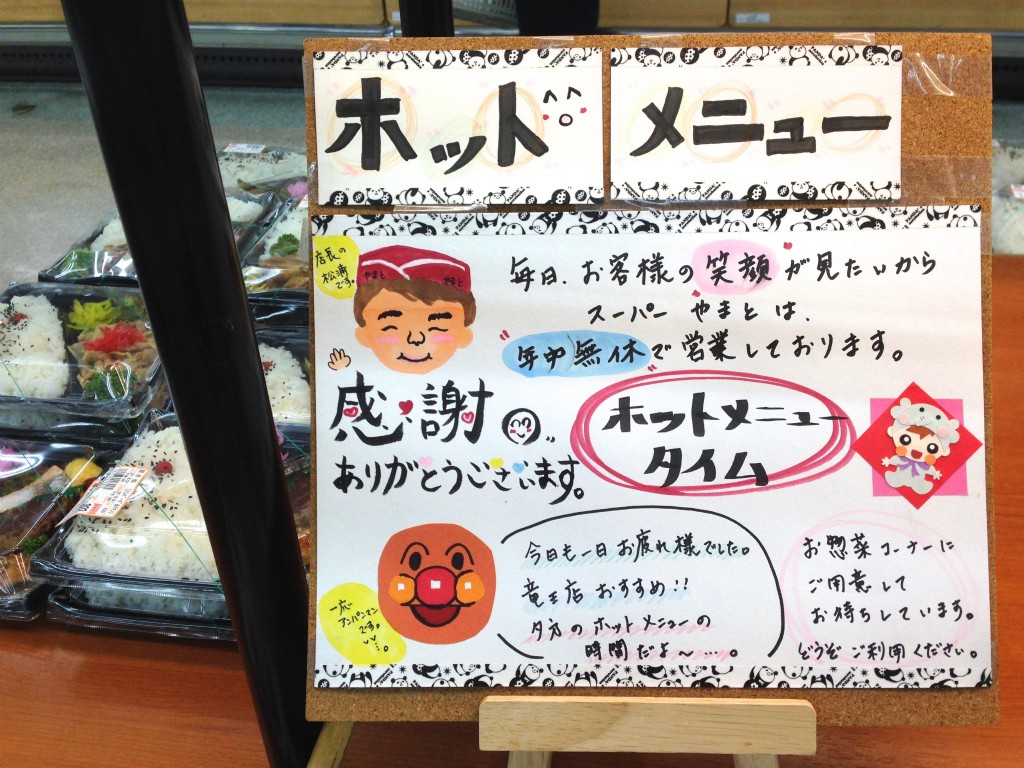 ホット メニュー
店長の
松浦
です。
やまと やまと
毎日、お客様の笑顔が見たいから
スーパー やまとは、
"年中無休"で営業しております。
感謝
ありがとうございます。
ホットメニュー
タイム
一応
アンパンマン
です。
今日も一日お疲れ様でした。
竜王店おすすめ!!
夕方のホットメニューの
時間だよ〜…。
お惣菜コーナーに
ご用意して
お待ちしています。
どうぞご利用ください。